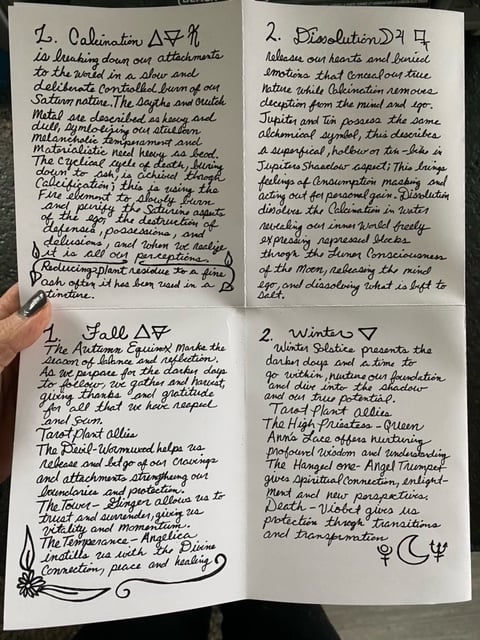 1. Calcination
is breaking down our attachments
to the world in a slow and
deliberate controlled burn of our
Saturn nature. The Scythe and Crutch
Metal are described as heavy and
dull, symbolizing our stubborn
melancholic temperament and
Materialistic need heavy as lead.
The cyclical cycle of death, burning
down to ash, is achieved through
Calcification; this is using the
Fire element to slowly burn
and purify the Saturine aspects
of the ego, the destruction of
defenses, possessions, and
delusions, and when we realize
it is all our perceptions.
Reducing plant residue to a fine
ash after it has been used in a
tincture.
2. Dissolution
releases our hearts and buried
emotions that conceal our true
Nature while Calcination removes
deception from the mind and ego.
Jupiter and Tin possess the same
alchemical symbol, this describes
a superfical, hollow or tin-like in
Jupiters Shadow aspect; This brings
feelings of Consumption masking and
acting out for personal gain. Dissolution
dissolves the Calcination in Water
revealing our inner World freely
expressing repressed blocks
through the Lunar Consciousness
of the Moon, releasing the mind
ego, and dissolving what is left to
Salt.
1. Fall
The Autumn Equinox marks the
season of balance and reflection.
As we perpare for the darker days
to follow, we gather and harvest,
giving thanks and gratitude
for all that we have reaped
and sown.
Tarot Plant Allies
The Devil-Wormwood helps us
release and let go of our cravings
and attachments strengthening our
boundaries and protection.
The Tower- Ginger allows us to
trust and surrender, giving us
vitality and momentum.
The Temperance- Angelica
instills us with the Divine
Connection, peace and healing
2. Winter
Winter Solstice presents the
darker days and a time to
go within, nurture our foundation
and dive into the shadow
and our true potential.
Tarot Plant Allies
The High Priestess- Queen
Ann's Lace offers nurturing
profound wisdom and understanding
The Hanged one- Angel Trumpet
gives Spiritual Connection, enlight-
ment and new perspectives.
Death- Violet gives us
protection through transitions
and transformation